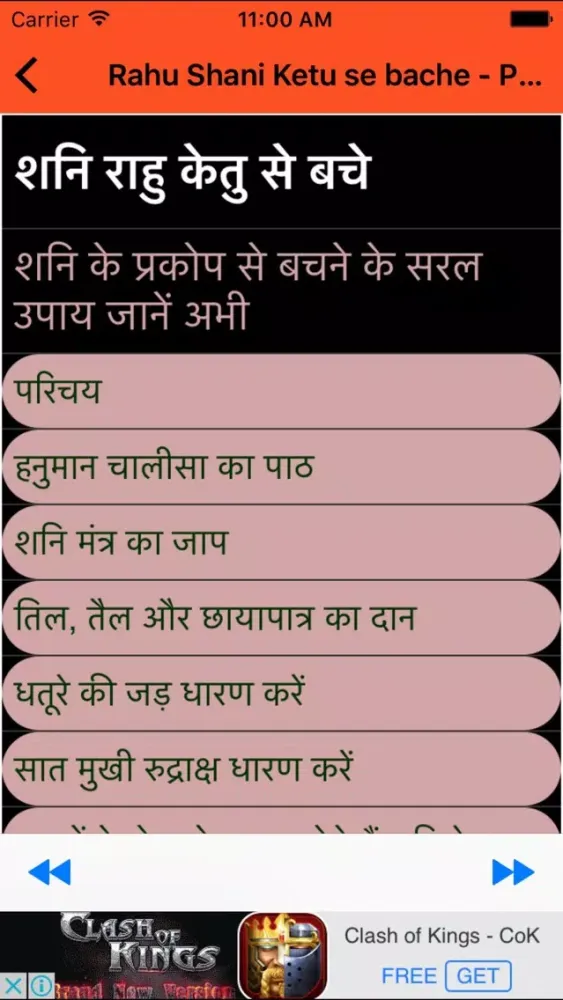 Carrier 11:00 AM
Rahu Shani Ketu se bache - P...
शनि राहु केतु से बचे
शनि के प्रकोप से बचने के सरल
उपाय जानें अभी
परिचय
हनुमान चालीसा का पाठ
शनि मंत्र का जाप
तिल, तैल और छायापात्र का दान
धतूरे की जड़ धारण करें
सात मुखी रुद्राक्ष धारण करें
CLASH OF KINGS
Brand New Version
Clash of Kings - CoK
FREE GET